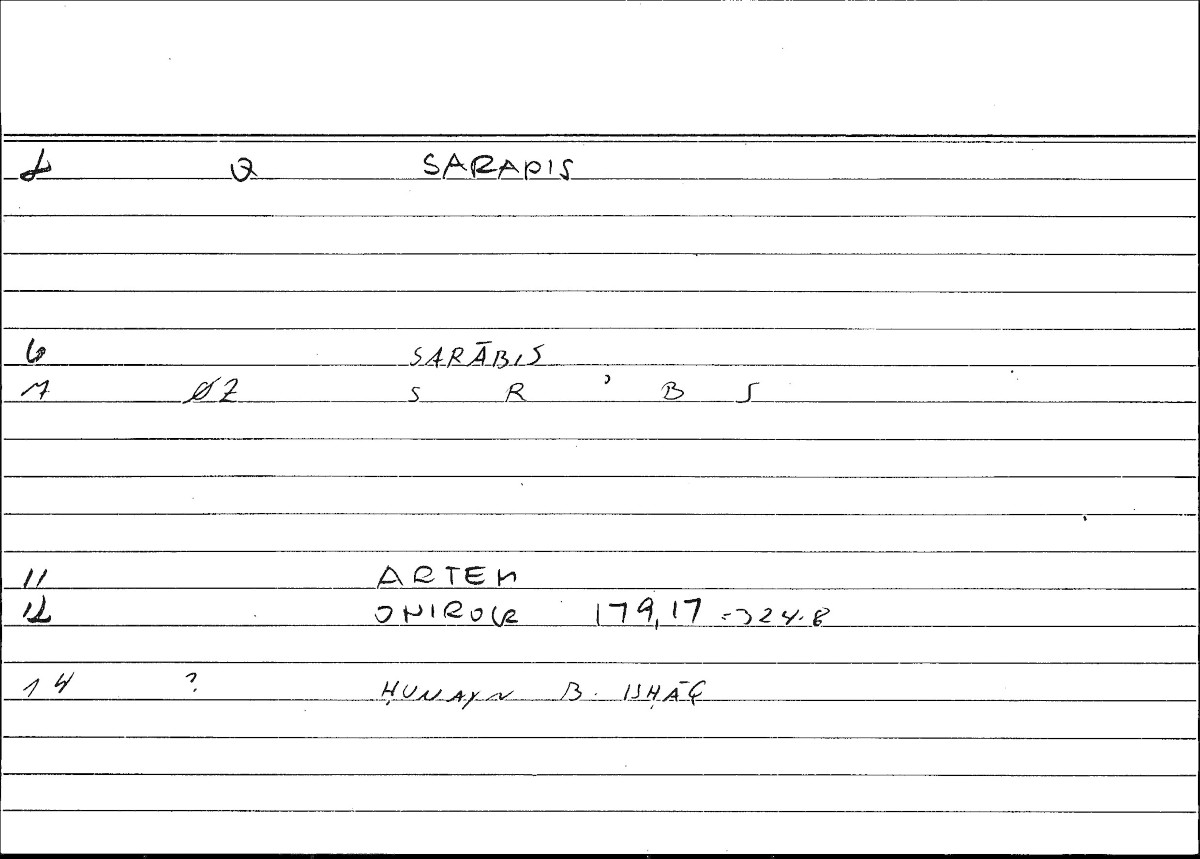 1 Q SARAPIS
6 SARĀBIS
7 ØZ S R ʾ B S
11 ARTEM
12 ONIROCR 179,17 = 324.8
14 ? ḤUNAYN B. ISḤĀQ